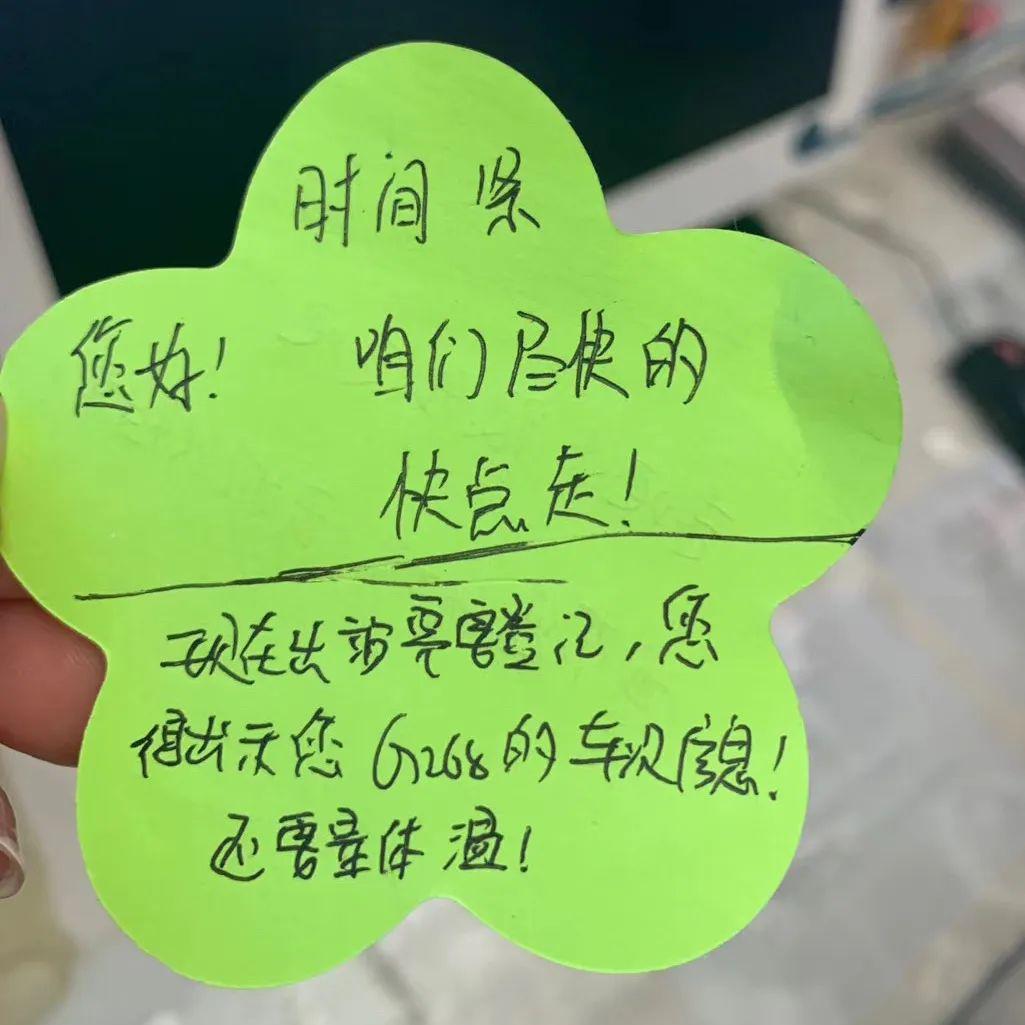 时间紧
您好! 咱们尽快的
快点走!
现在出站要需登记,您
得出示您G268的车次信息!
还要量体温!